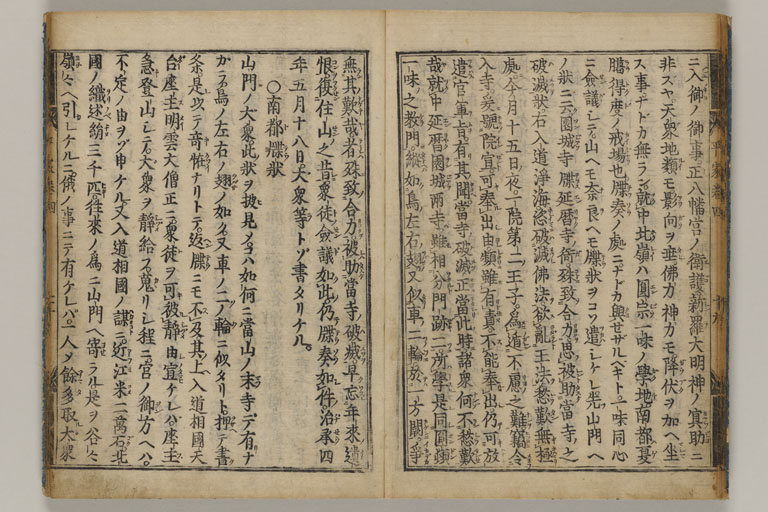 ニ入御ノ御事正八幡宮ノ衛護新羅大明神ノ冥助ニ
非スヤ天衆地類モ影向ヲ垂佛力神力モ降伏ヲ加ヘ坐
ス事ナドカ無ラン就中北嶺ハ圓宗一味ノ學地南都夏
﨟得度ノ戒場也牒奏ノ處ニナドカ與セザルヘキト一味同心
ニ僉議シテ山ヘモ奈良ヘモ牒狀ヲコソ遣シケレ先山門ヘ
ノ狀ニ云園城寺牒延暦寺ノ衙殊致合力思被助當寺之
破滅狀右入道淨海恣破滅佛法欲亂王法愁歎無極
處今月十五日夜一院第二王子爲遁不慮之難竊令
入寺爰號院宣可奉出由頻雖有責不能奉出仍可放
遣官軍旨有其聞當寺破滅正當此時諸衆何不愁歎
哉就中延暦園城兩寺雖相分門跡二所學是同圓頓
一味之教門縱如鳥左右翅又似車二輪於一方闕爭
無其歎哉者殊致合力被助當寺破滅早忘年來遺
恨復住山之昔衆徒僉議如此仍牒奏如件治承四
年五月十八日大衆等トゾ書タリケル
○南都牒狀
山門ノ大衆此狀ヲ披見シテコハ如何ニ當山ノ末寺デ有ナ
カラ鳥ノ左右ノ翅ノ如ク又車ノ二ノ輪ニ似タリト押テ書
条是以テ奇怪ナリトテ返牒ニモ不及其上入道相國天
台座主明雲大僧正ニ衆徒ヲ可被靜由宣ケレバ座主
急登山シテ大衆ヲ靜給フ去程ニ宮ノ御方ヘハ
不定ノ由ヲゾ申ケル又入道相國ノ謀ニ近江米一萬石北
國ノ織延絹三千匹往來ノ爲ニ山門ヘ寄ラル是ヲ谷々
嶺々ヘ引レケルニ俄ノ事ニテ有ケレバ一人ヲ餘多取大衆